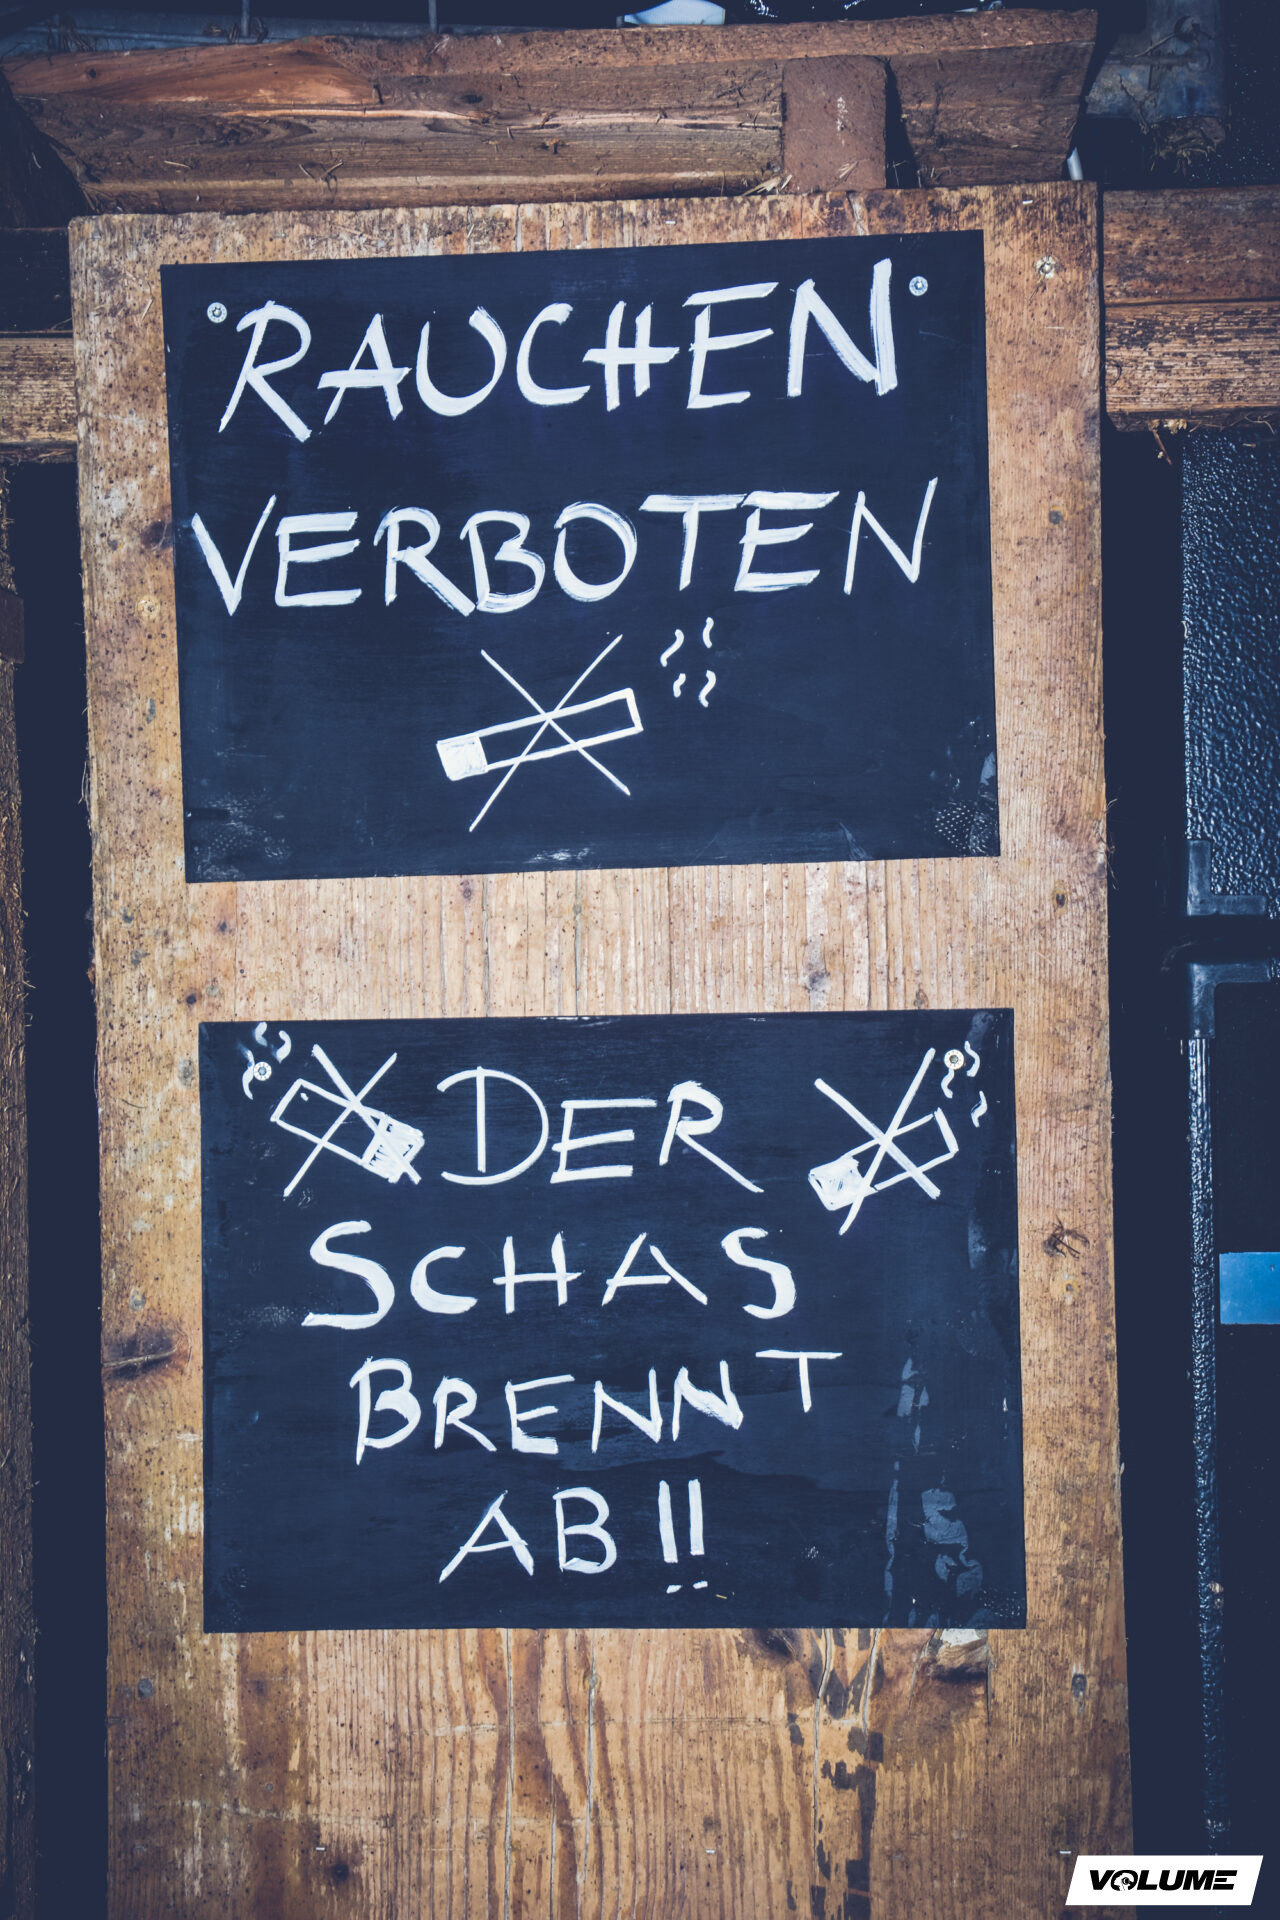 RAUCHEN
VERBOTEN
DER
SCHAS
BRENNT
AB!!
VOLUME